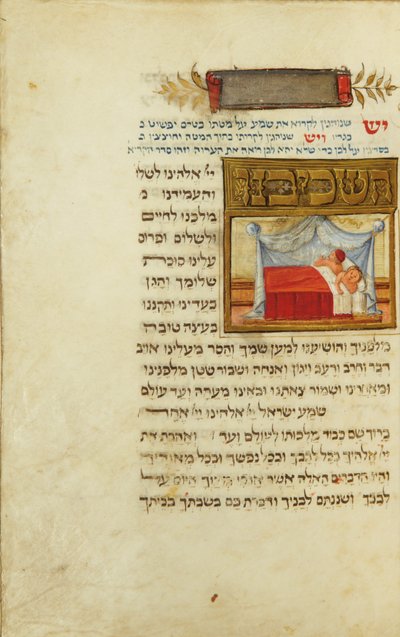 יש שנוהגין לקרוא את שמע על מטתו בטרם יפשיט
בגדו ויש שנוהגין לקריתי בתוך המטה וחוצצין ב
בסדינין על לבן כדי שלא יהא לבן רואה את הערוה וזהו סדר הקריא
השכיבנו
יי' אלהינו לשלו
והעמידנו מ
מלכנו לחיים
ולשלום ופרוס
עלינו סוכת
שלומך והגן
בעדינו ותקננו
בעצה טובה
מלפניך והושיענו למען שמך והסר מעלינו אויב
דבר וחרב ורעב ויגון ואנחה ושבור שטן מלפנינו
ומאחרינו ושמור צאתנו ובואינו מעתה ועד עולם
שמע ישראל יי' אלהינו יי' אחד
ברוך שם כבוד מלכותו לעולם ועד ואהבת את
יי' אלהיך בכל לבבך ובכל נפשך ובכל מאודיך
והיו הדברים האלה אשר אנכי מצוך היום על
לבבך ושננתם לבניך ודברת בם בשבתך בביתך